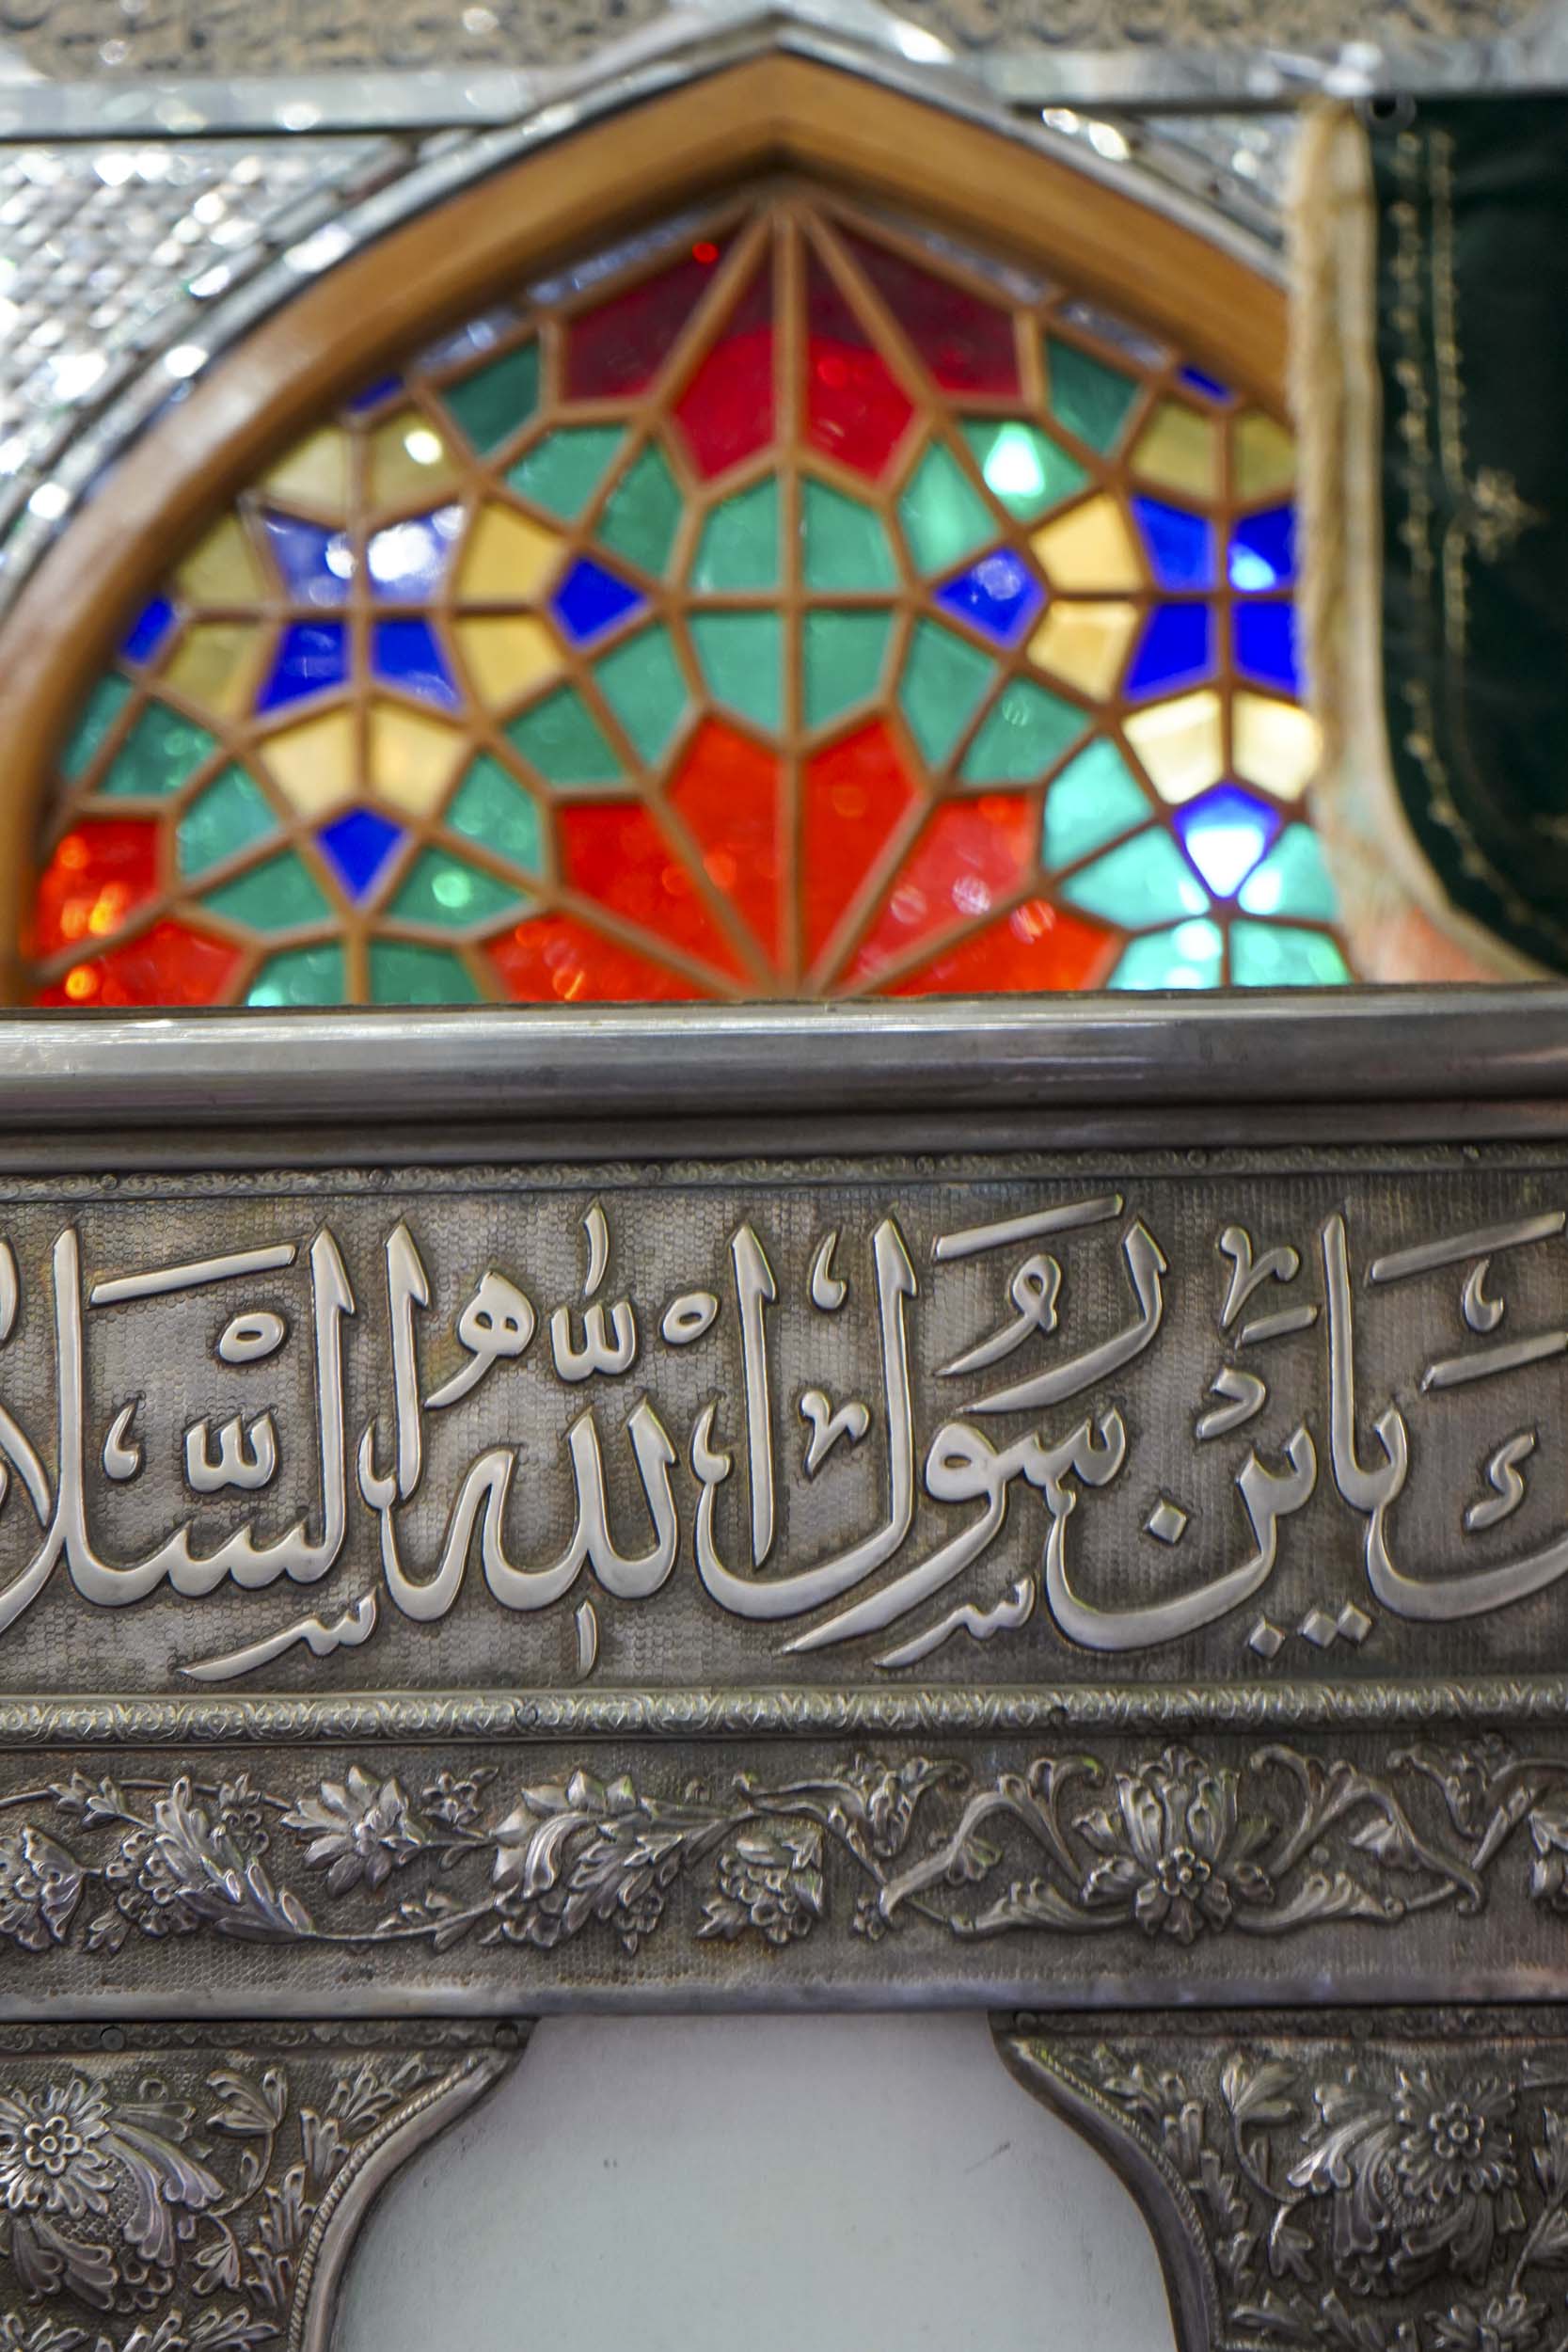 ـكَ يَابْنَ رَسُولِ اللّٰهِ السَّلا